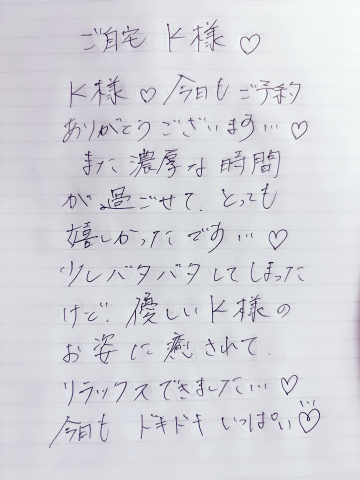 ご自宅 K様♡
K様♡今日もご予約
ありがとうございます…♡
また濃厚な時間
が過ごせて、とっても
嬉しかったです…♡
少しバタバタしてしまった
けど、優しいK様の
お姿に癒されて、
リラックスできました…♡
今日も ドキドキ いっぱい♡